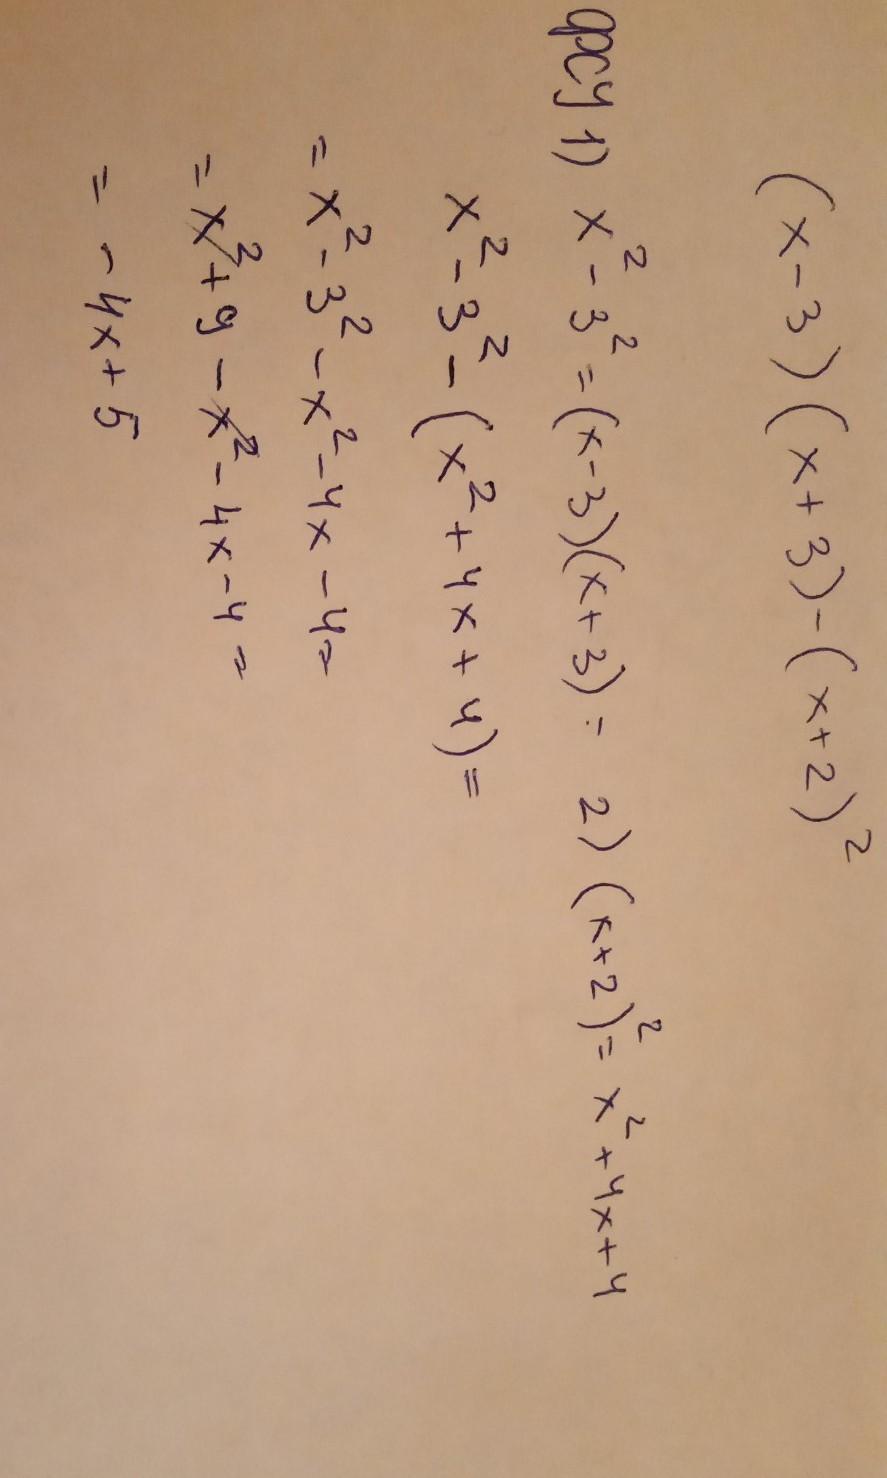 (x-3)(x+3)-(x+2)²
фсу 1) x²-3²=(x-3)(x+3)= 2) (x+2)²= x²+4x+4
x²-3²-(x²+4x+4)=
=x²-3²-x²-4x-4=
=x²+9-x²-4x-4=
= -4x+5